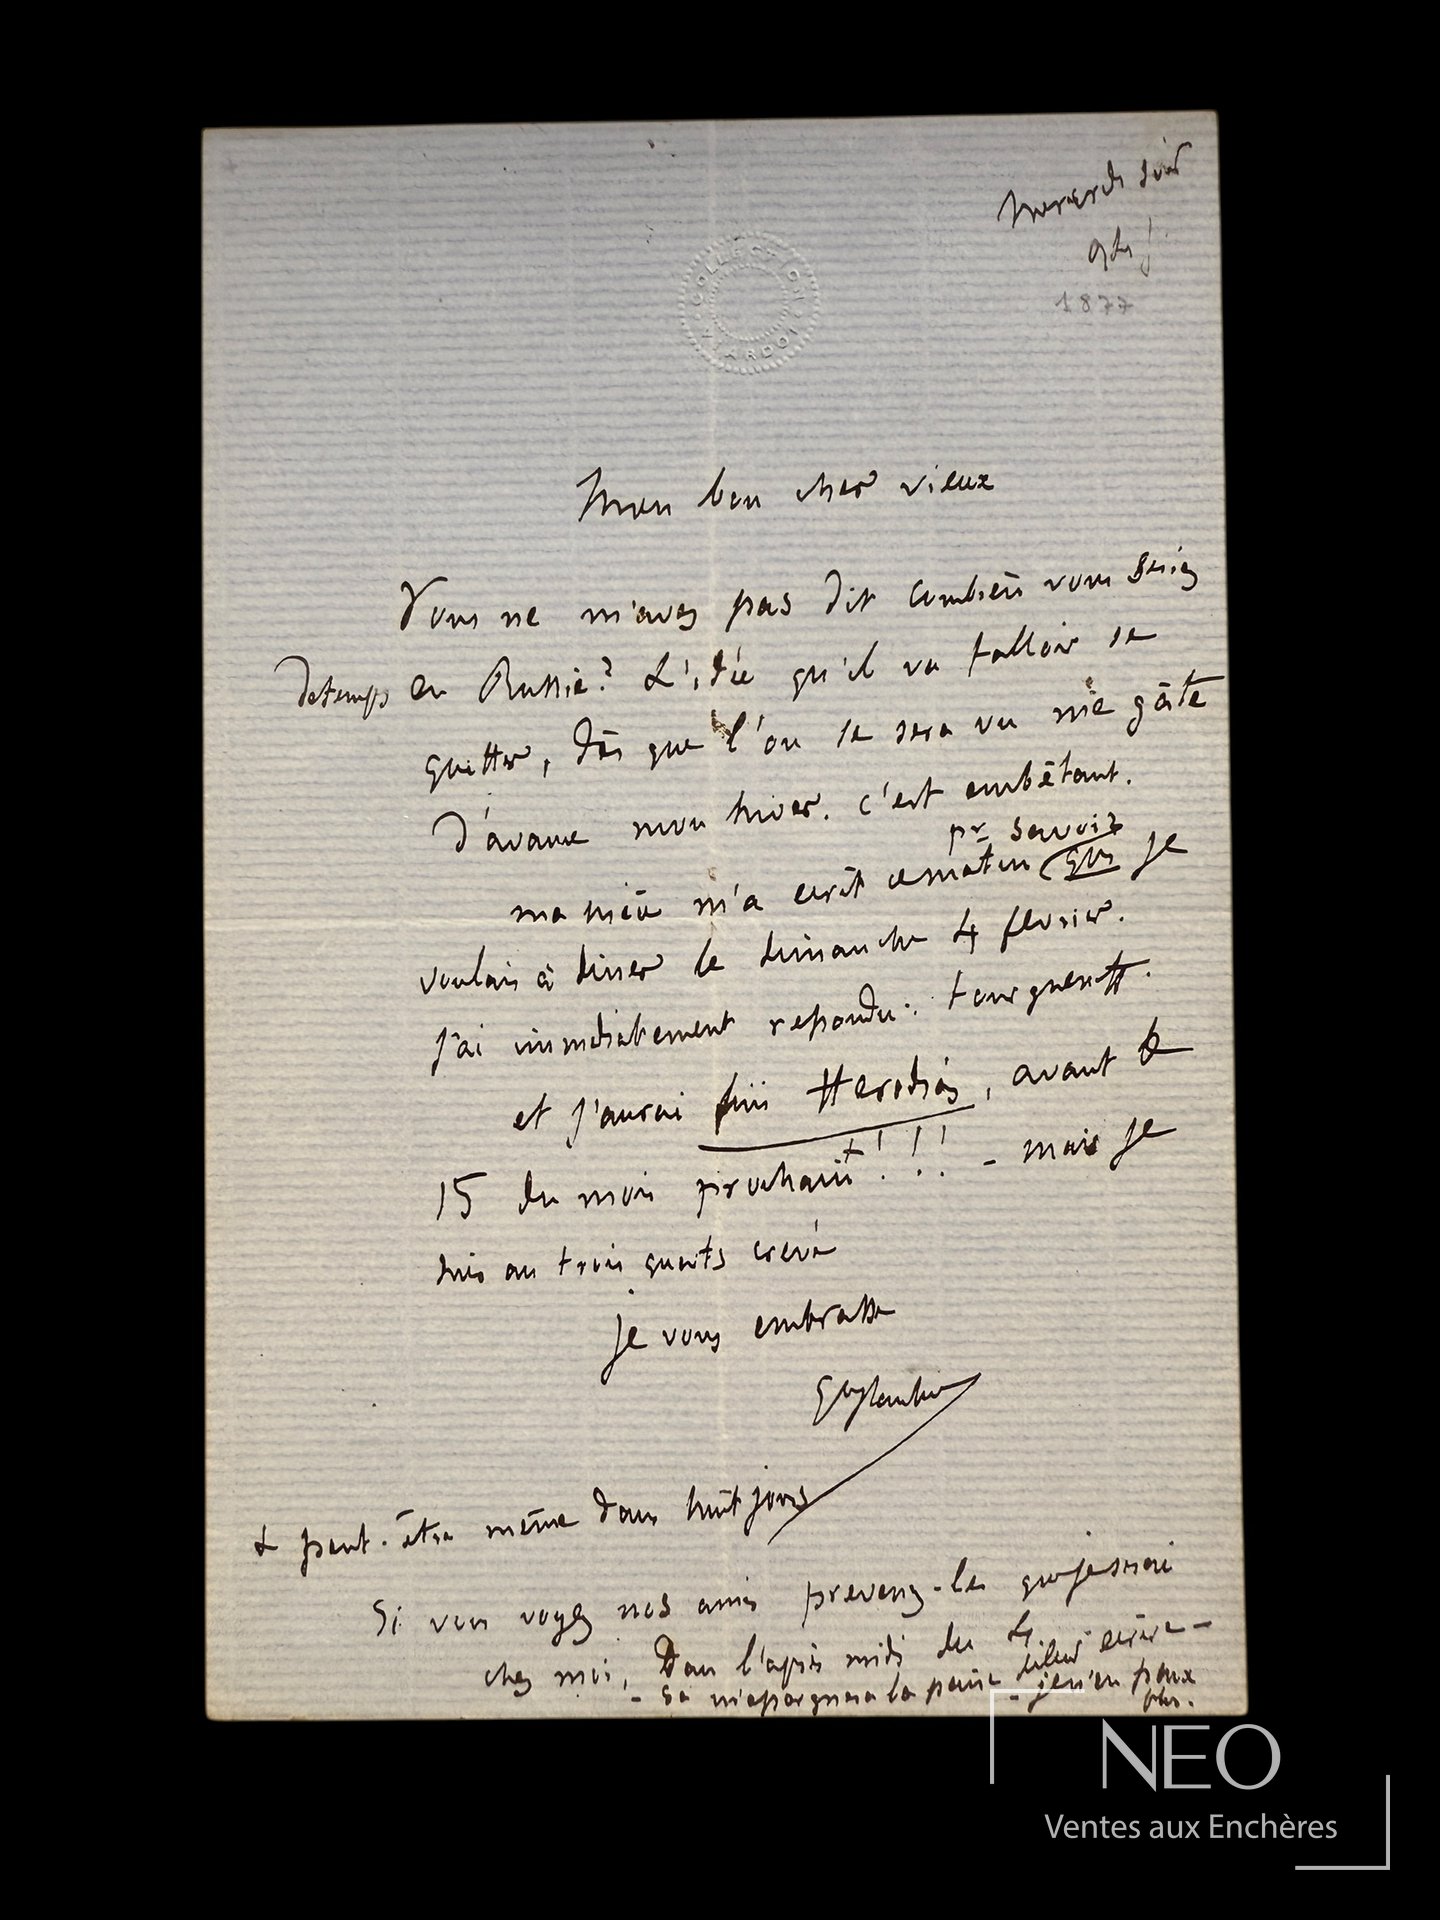 Mercredi soir
9 h
1877
COLLECTION VIARDOT
Mon bon cher vieux
Vous ne m'avez pas dit combien vous seriez
de temps en Russie? L'idée qu'il va falloir se
quitter, dès que l'on se sera vu me gâte
d'avance mon hiver. c'est embêtant.
pr savoir
ma nièce m'a ecrit ce matin qui je
voulais à diner le dimanche 4 fevrier.
J'ai immediatement repondu: tourgueneff.
et j'aurai fini Herodias, avant le
15 du mois prochain+!!! - mais je
suis au trois quarts crevé
je vous embrasse
Gve flaubert
+ peut-être même dans huit jours
Si vous voyez nos amis prevenez-les que je serai
chez moi, Dans l'après midi du 4
- ça m'epargnera la peine de leur ecrire -
- je n'en peux
plus.
NEO
Ventes aux Enchères